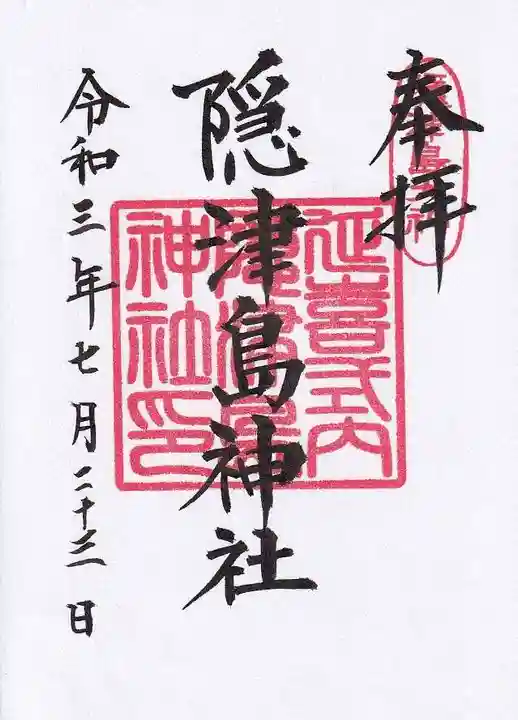 奉拝
延喜式内
隠津島神社
隠津島神社
神社印
令和三年七月二十三日